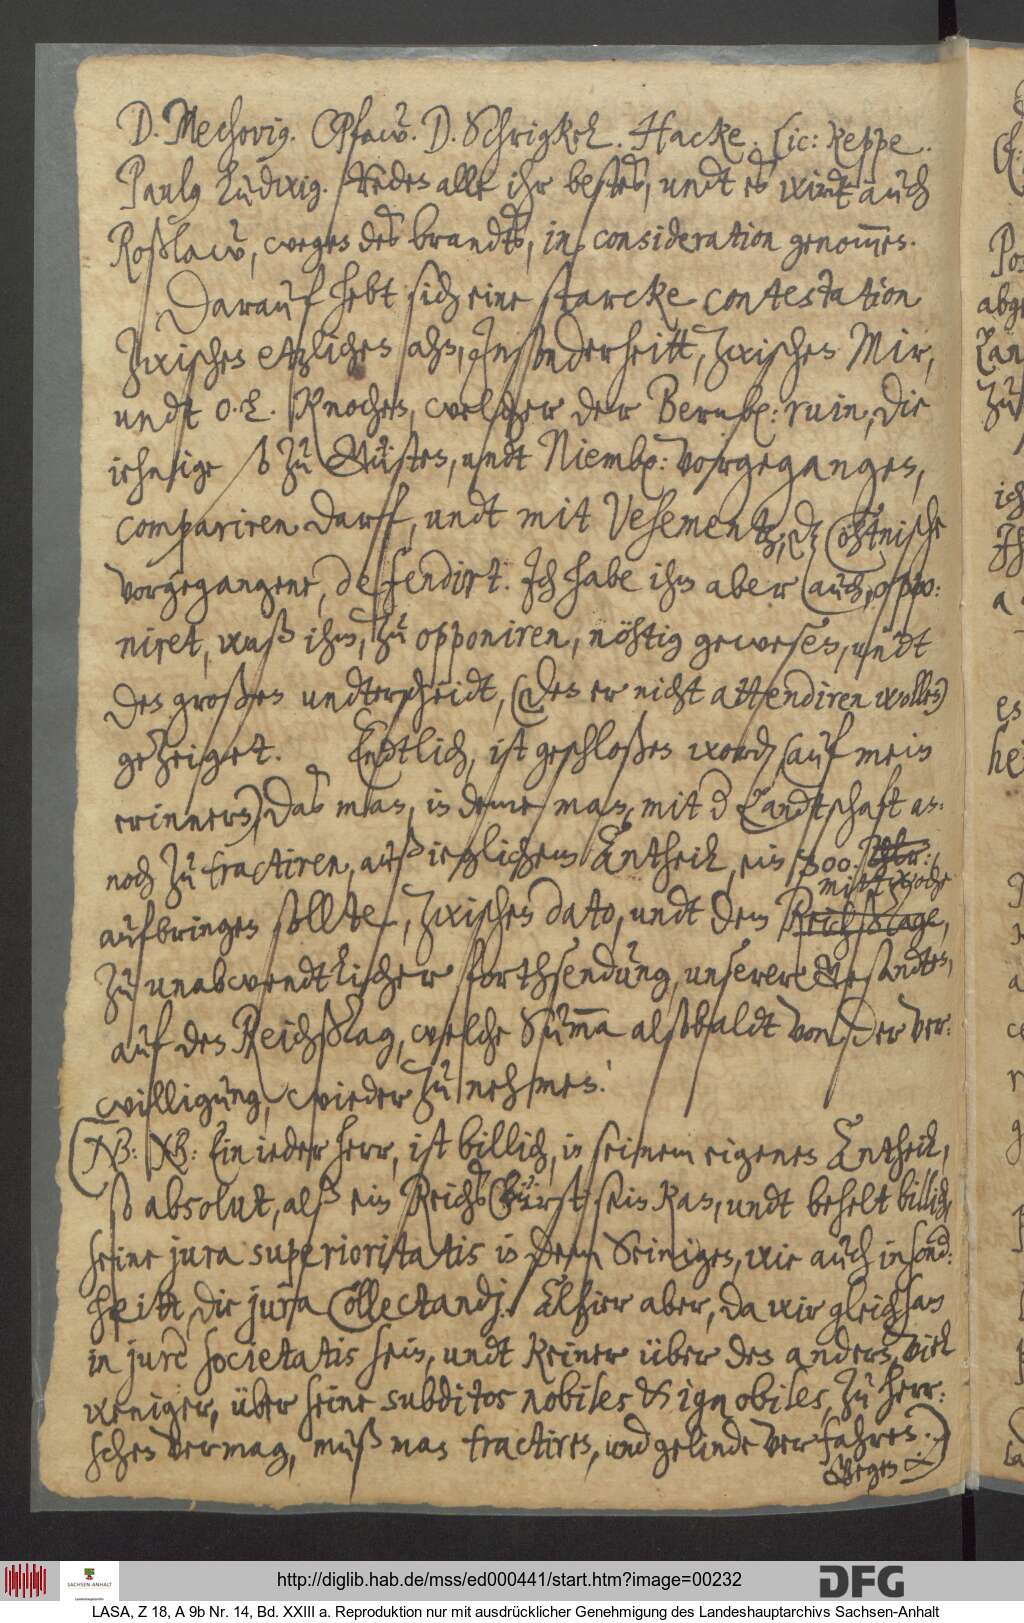 D. Mechovig. Pfaw. D. Schrigkel. Hacke. Lic: Reppe.
Paulg Ludwig. redes alle ihr bestes, undt es wirdt auch
Roßlaw, weges des brandts, in consideration genom̅es.
Darauf hebt sich eine starcke contestation
Zwisches etzliches ahn, Insonderheitt, Zwisches Mir,
undt O. L. Knoches, welcher der Bernb: ruin, die
iehnige so zu Güstes, undt Niemb: vorgeganges,
compariren darff, undt mit Vehementz, die Cöhtnische
vorgegangene, defendirt. Ich habe ihm aber auch, oppo:
niret, waß ihm, zu opponiren, nöhtig geweses, undt
des großes undterscheidt, (des er nicht attendiren wolles)
gezeiget. Endtlich, ist geschloßes word, (auf mein
erinnern) das man, in deme man, mit d Landtschaft an:
noch zu tractiren, auß ietzlichem Antheil, ein 500
mittwoche
aufbringen sollte, zwisches dato, undt dem Reichßtage,
zu unabwendtlicher forthsendung, unserer Gesandtes,
auf des Reichßtag, welche Sum̅a alßbaldt von der ver:
willigung, wieder zu nehmes.
(NB: NB: Ein ieder herr, ist billich, in seinem eigenes Antheil,
so absolut, alß ein Reichsfürst sein kan, undt behelt billich,
seine jura superioritatis in dem Seiniges, wie auch insond:
heitt, die jura Collectandj. Alhier aber, da wir gleichsam
in jure societatis sein, undt keiner über des anders, viel
weniger, über seine subditos nobiles & ignobiles, zu herr:
sches vermag, muß man tractires, und gelinde verfahres.)
Weges
http://diglib.hab.de/mss/ed000441/start.htm?image=00232
SACHSEN-ANHALT
DFG
LASA, Z 18, A 9b Nr. 14, Bd. XXIII a. Reproduktion nur mit ausdrücklicher Genehmigung des Landeshauptarchivs Sachsen-Anhalt